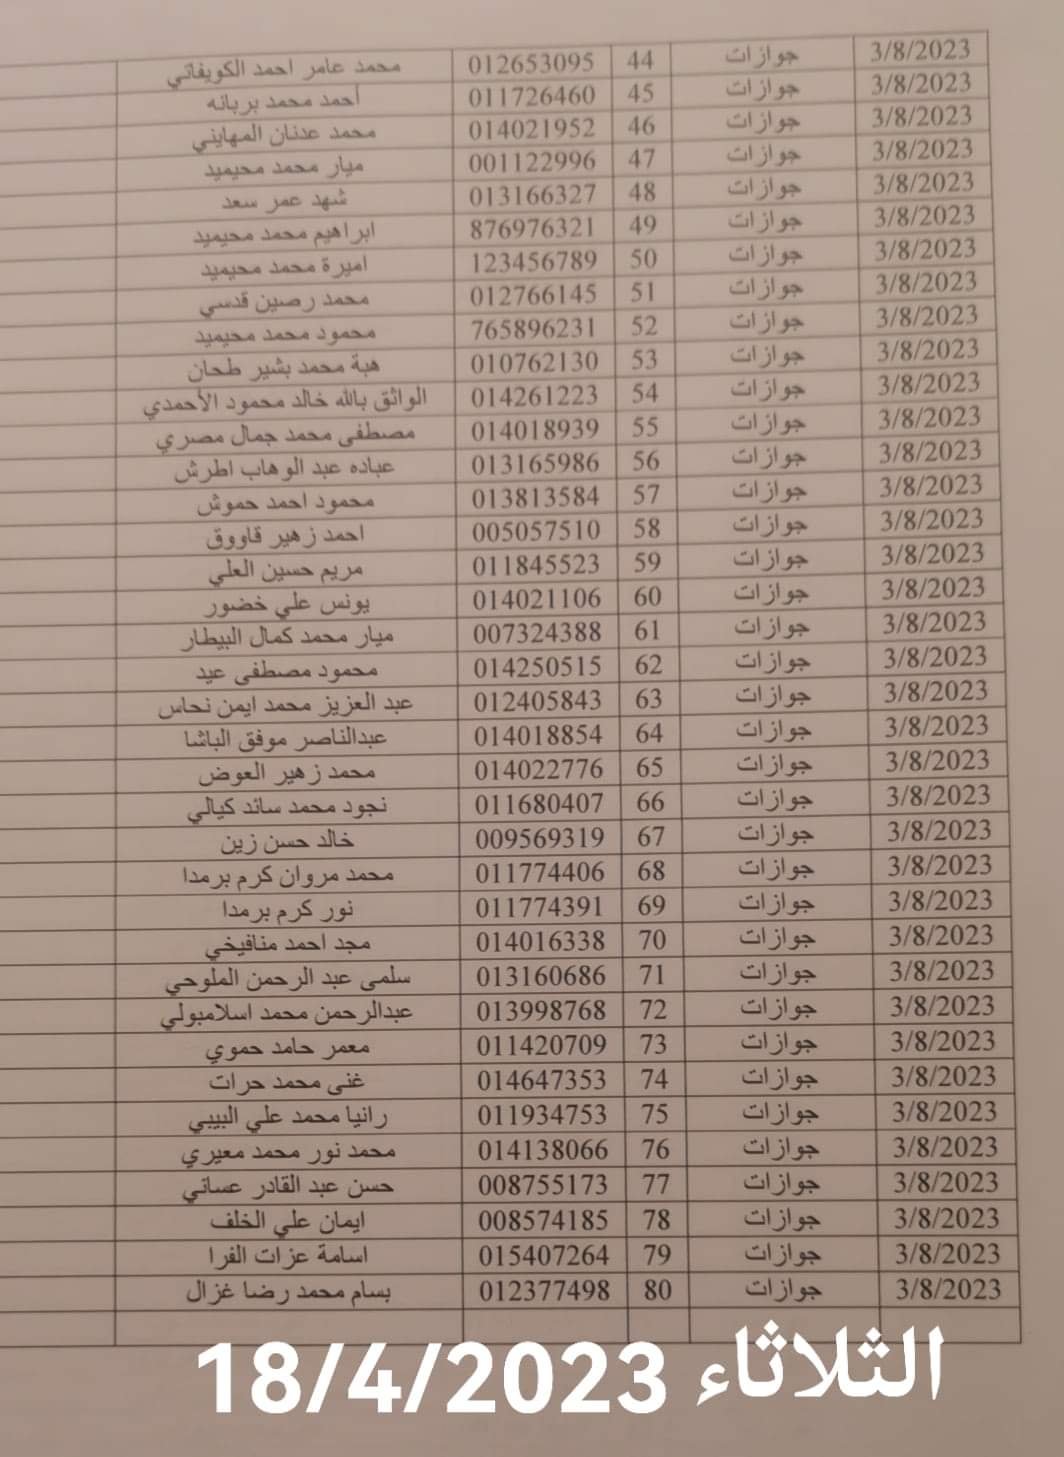 3/8/2023 جوازات 44 012653095 محمد عامر احمد الكويفاتي
3/8/2023 جوازات 45 011726460 أحمد محمد بربانه
3/8/2023 جوازات 46 014021952 محمد عدنان المهايني
3/8/2023 جوازات 47 001122996 ميار محمد محيميد
3/8/2023 جوازات 48 013166327 شهد عمر سعد
3/8/2023 جوازات 49 876976321 ابراهيم محمد محيميد
3/8/2023 جوازات 50 123456789 اميرة محمد محيميد
3/8/2023 جوازات 51 012766145 محمد رصين قدسي
3/8/2023 جوازات 52 765896231 محمود محمد محيميد
3/8/2023 جوازات 53 010762130 هبة محمد بشير طحان
3/8/2023 جوازات 54 014261223 الواثق بالله خالد محمود الأحمدي
3/8/2023 جوازات 55 014018939 مصطفى محمد جمال مصري
3/8/2023 جوازات 56 013165986 عباده عبد الوهاب اطرش
3/8/2023 جوازات 57 013813584 محمود احمد حموش
3/8/2023 جوازات 58 005057510 احمد زهير قاووق
3/8/2023 جوازات 59 011845523 مريم حسين العلي
3/8/2023 جوازات 60 014021106 يونس علي خضور
3/8/2023 جوازات 61 007324388 ميار محمد كمال البيطار
3/8/2023 جوازات 62 014250515 محمود مصطفى عيد
3/8/2023 جوازات 63 012405843 عبد العزيز محمد ايمن نحاس
3/8/2023 جوازات 64 014018854 عبدالناصر موفق الباشا
3/8/2023 جوازات 65 014022776 محمد زهير العوض
3/8/2023 جوازات 66 011680407 نجود محمد سائد كيالي
3/8/2023 جوازات 67 009569319 خالد حسن زين
3/8/2023 جوازات 68 011774406 محمد مروان كرم برمدا
3/8/2023 جوازات 69 011774391 نور كرم برمدا
3/8/2023 جوازات 70 014016338 مجد احمد منافيخي
3/8/2023 جوازات 71 013160686 سلمى عبد الرحمن الملوحي
3/8/2023 جوازات 72 013998768 عبدالرحمن محمد اسلامبولي
3/8/2023 جوازات 73 011420709 معمر حامد حموي
3/8/2023 جوازات 74 014647353 غنى محمد حرات
3/8/2023 جوازات 75 011934753 رانيا محمد علي البيبي
3/8/2023 جوازات 76 014138066 محمد نور محمد معيري
3/8/2023 جوازات 77 008755173 حسن عبد القادر عساني
3/8/2023 جوازات 78 008574185 ايمان علي الخلف
3/8/2023 جوازات 79 015407264 اسامة عزات الفرا
3/8/2023 جوازات 80 012377498 بسام محمد رضا غزال
الثلاثاء 18/4/2023